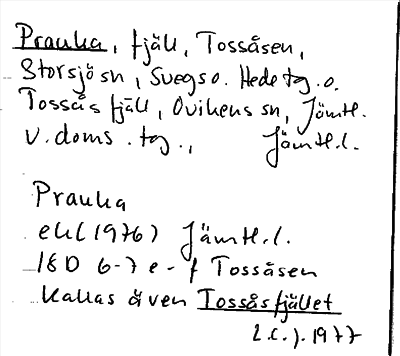 Prauka, fjäll, Tossåsen,
Storsjö sn, Svegs o. Hede tg. o.
Tossås fjäll, Ovikens sn, Jämtl.
v. doms. tg., Jämtl. l.
Prauka
ek (1976) Jämtl. l.
18D 6-7 e-f Tossåsen
Kallas även Tossåsfjället
L.C.J. 1977